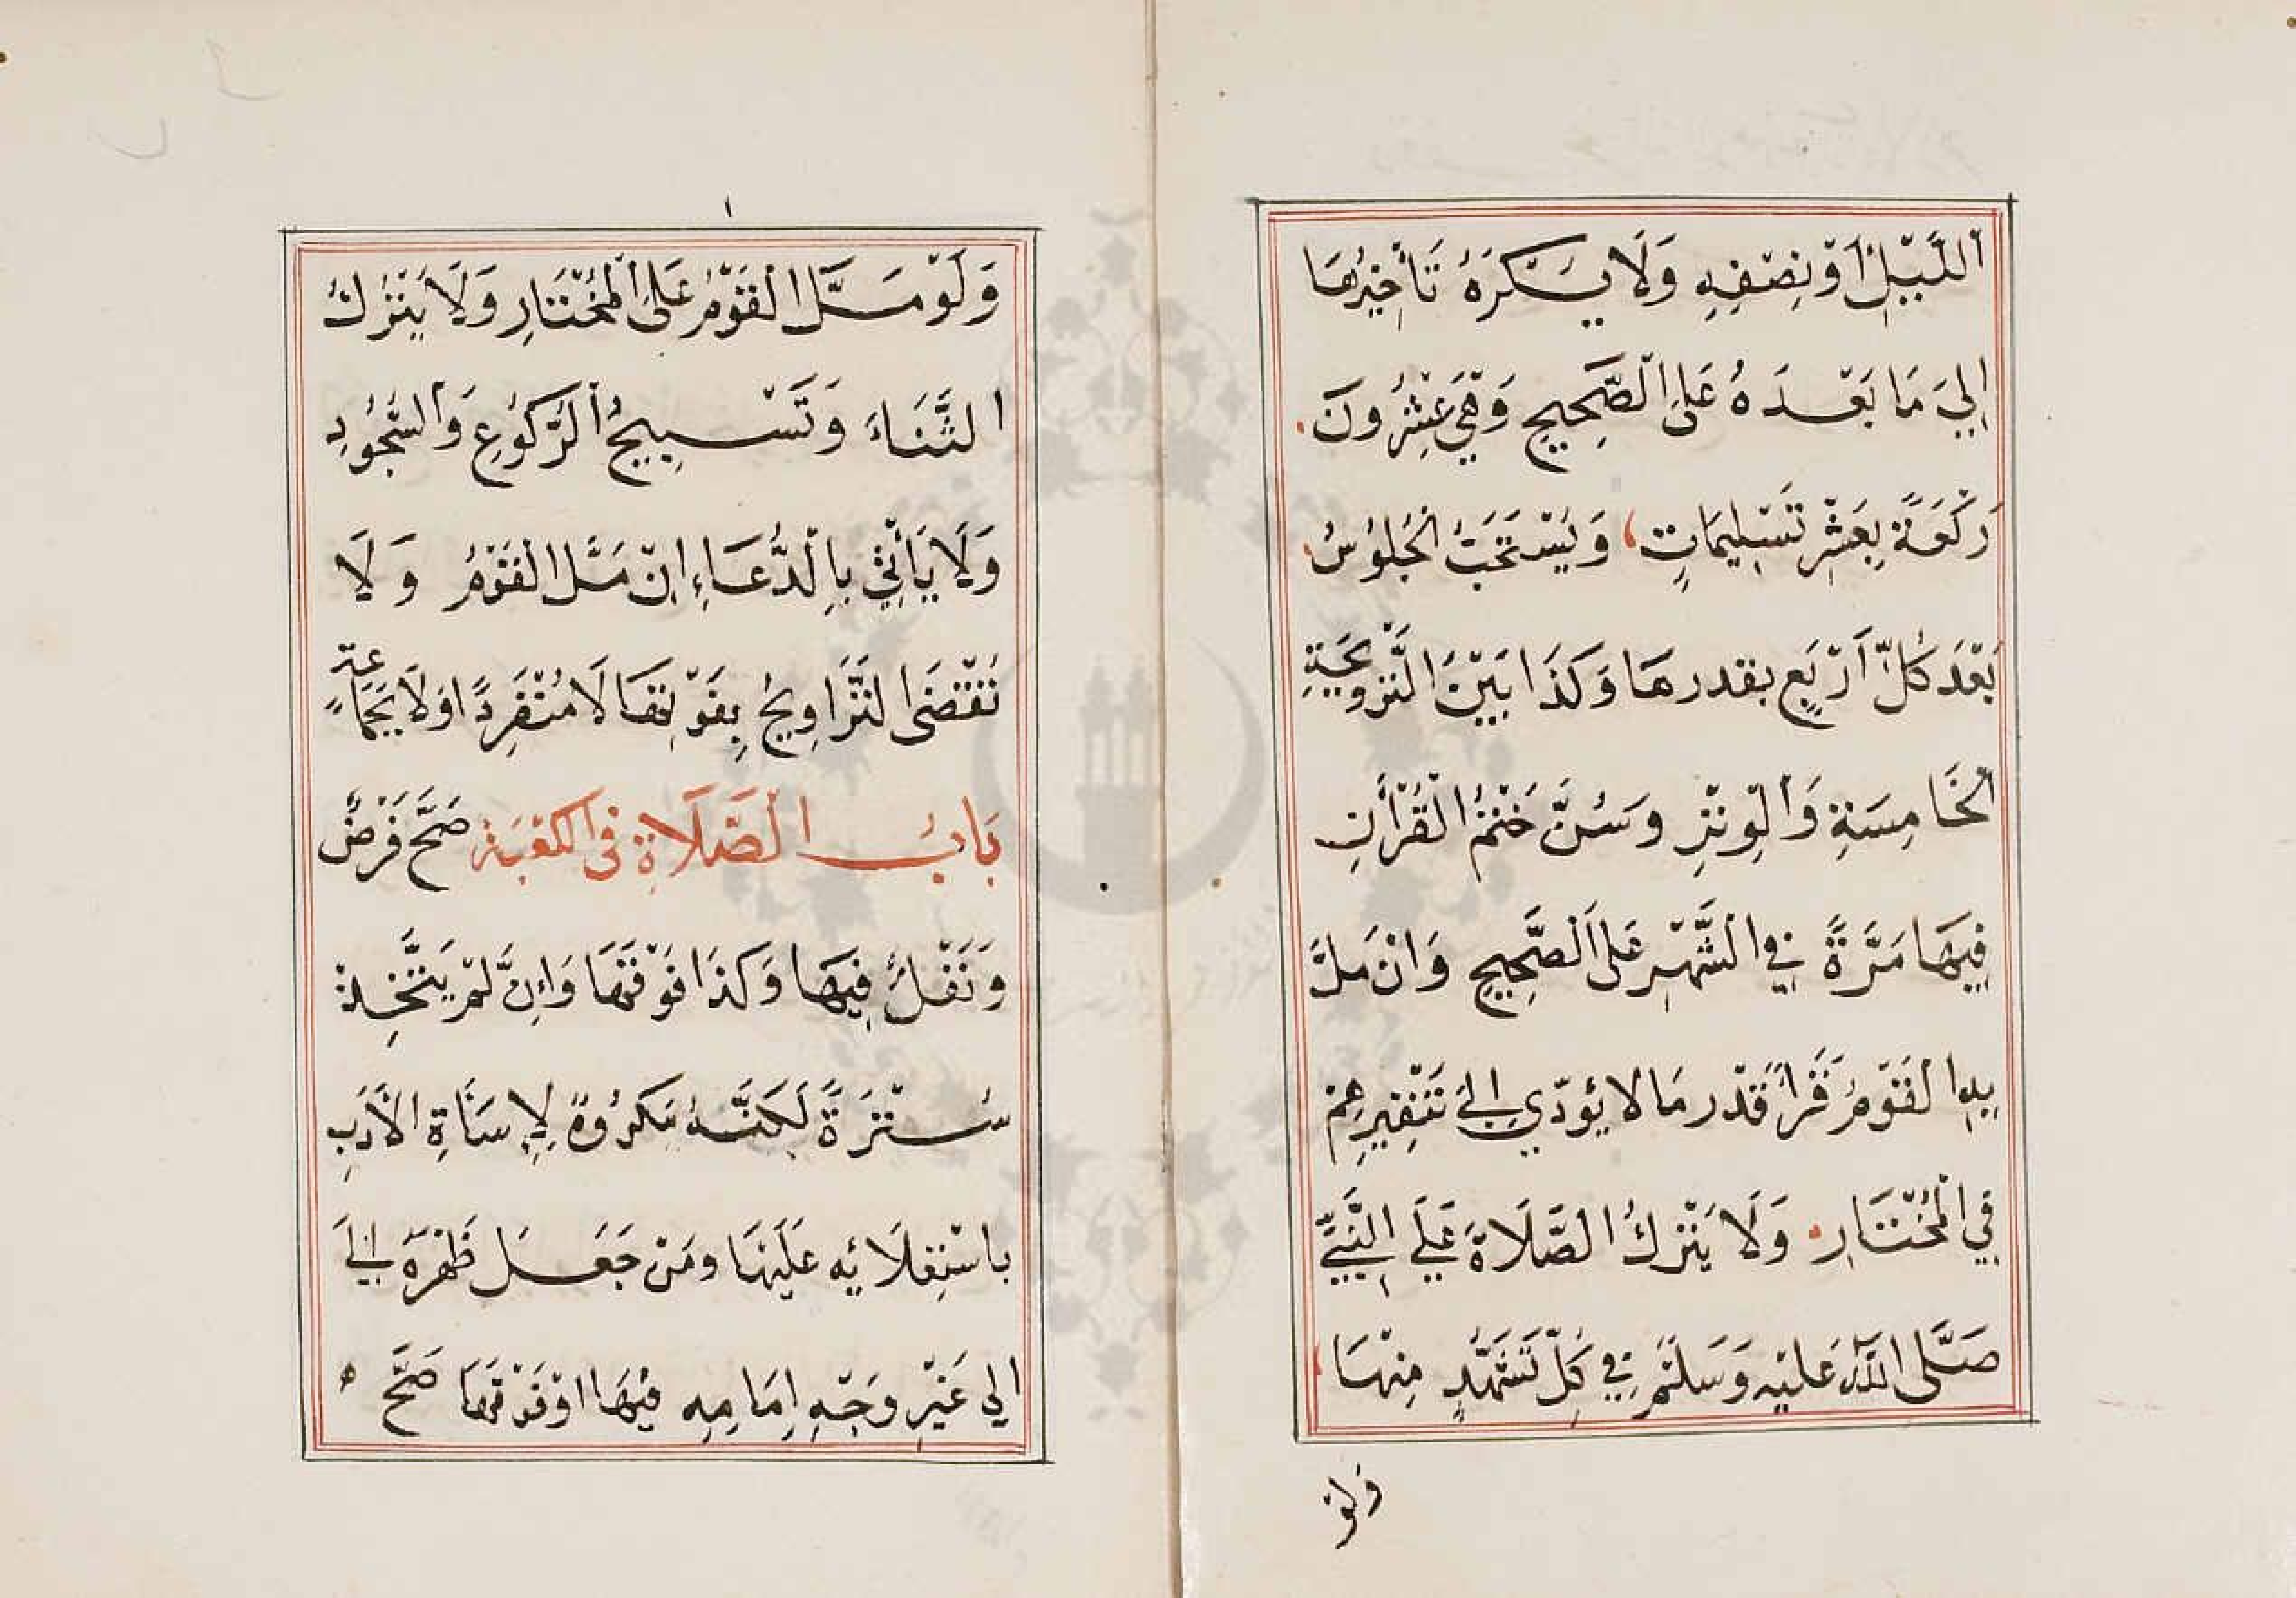 اَللَّيْلِ اَوْ نِصْفِهِ وَلَا يُكْرَهُ تَأْخِيْرُهَا
اِلَيَ مَا بَعْدَهُ عَلَى الْصَّحِيحِ وَهِيَ عِشْرُونَ
رَكْعَةً بِعَشْرِ تَسْلِيمَاتٍ وَيُسْتَحَبُّ الْجُلُوْسُ
بَعْدَ كُلِّ اَرْبَعٍ بقدرهَا وَكَذَا بَيْنَ الْتَّرْوِيحَةِ
الْخَامِسَةِ وَاَلْوِتْرِ وَسُنَّ خَتْمُ الْقُرْأٰنِ
فِيهَا مَرَّةً فِي الْشَّهْرِ عَلَى اَلْصَّحِيحِ وَاِنْ مَلَّ
بِهِ الْقَوْمُ قَرَأَ قَدْر مَا لا يُؤدّي اِلَىَ تَنْفِيرِهِمْ
فِي الْمُخْتَارِ وَلَا يَتْرُكُ الْصَّلَاةَ عَلَى النَّبِيِّ
صَلَّى اللّٰهُ عَلَيْهِ وَسَلَّمْ فِي كُلِّ تَشَهُّدٍ مِنْهَا
وَلَوْ
١
وَلَوْ مَلَّ الْقَوْمُ عَلَى اَلْمُخْتَارِ وَلَا يَتْرُكُ
الثَّنَاءَ وَتَسْبِيحُ اَلرُّكُوْعِ وَاَلسُّجُوْدِ
وَلَا يَأْتِيْ بِالْدُّعَاءِ اِنْ مَلَّ الْقَوْمُ وَلَا
تُقْضَى الْتَّرَاوِيحُ بِفَوْتِهَا لَا مُنْفَرِدًا وَلَا بِجَمَاعَةٍ
بَابُ الْصَّلَاةِ فِى الْكَعْبَةِ صَحَّ فَرْضٌ
وَنَفْلٌ فِيهَا وَكَذَا فَوْقَهَا وَاِنْ لَمْ يَتَّخِذْ
سُتْرَةً لَكِنَّهُ مَكْرُوْهٌ لِإِسَاَةِ الْأَدَبِ
باسْتِعْلَائِهِ عَلَيْهَا ومَنْ جَعَلَ ظَهْرَهُ اِلَىَ
اِلي غَيْرِ وَجْهِ اِمَامِهِ فِيْهَا اَوْ فَوْقَهَا صَحَّ ه